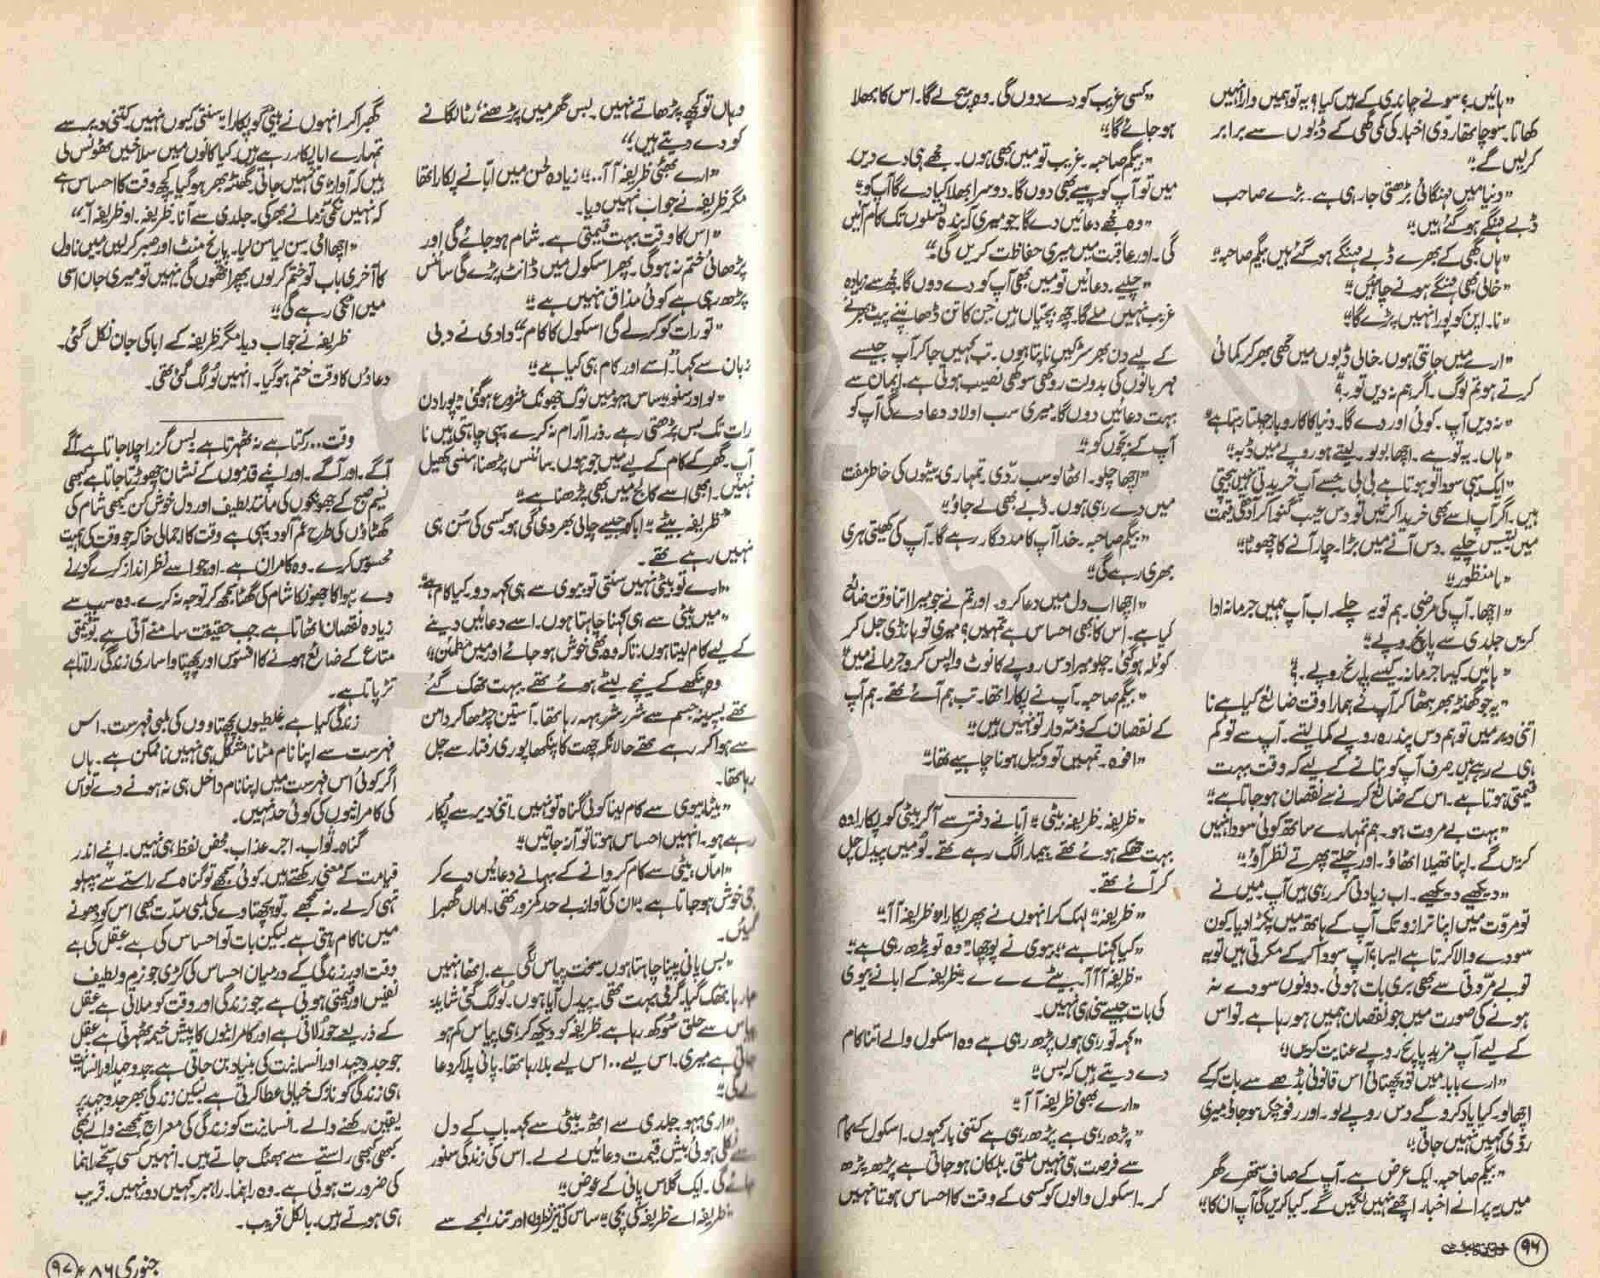 ”ہائیں۔ یہ سونے چاندی کے ہیں کیا؟ یہ تو ہمیں وارا نہیں
کھاتا۔ سوچا تھا ردی اخبار کی کمی گھی کے ڈبوں سے برابر
کرلیں گے“
”دنیا میں مہنگائی بڑھتی جارہی ہے۔ بڑے صاحب
ڈبے مہنگے ہوگئے ہیں“
”ہاں گھی کے بھرے ڈبے مہنگے ہوگئے ہیں بیگم صاحبہ“
”خالی بھی مہنگے ہونے چاہئیں“
”نا۔ این کو پورا نہیں پڑے گا“
”ارے میں جانتی ہوں۔ خالی ڈبوں میں گھی بھر کر کمائی
کرتے ہو تم لوگ۔ اگر ہم نہ دیں تو۔ ؟
”نہ دیں آپ۔ کوئی اور دے گا۔ دنیا کا کاروبار چلتا رہتا ہے“
”ہاں۔ یہ تو ہے۔ اچھا بولو۔ لیتے ہو روپے میں ڈبہ“
”ایک ہی سودا تو ہوتا ہے بی بی جسے آپ خریدتی نہیں بیچتی
ہیں۔ اگر آپ اسے بھی خریدا کرتیں تو دس عیب گنوا کر آدھی قیمت
میں لیتیں چلیے۔ دس آنے میں بڑا۔ چار آنے کا چھوٹا“
”نا منظور“
”اچھا۔ آپ کی مرضی۔ ہم تو یہ چلے۔ اب آپ ہمیں جرمانہ ادا
کریں جلدی سے پانچ روپے“
”ہائیں۔ کیسا جرمانہ۔ کیسے پانچ روپے۔ ؟“
”یہ جو گھنٹہ بھر بٹھا کر آپ نے ہمارا وقت ضائع کیا ہے نا
اتنی دیر میں تو ہم دس پندرہ روپے کما لیتے۔ آپ سے تو کم
ہی لے رہے ہیں۔ صرف آپ کو بتانے کے لیے کہ وقت بہت
قیمتی ہوتا ہے۔ اس کے ضائع کرنے سے نقصان ہوجاتا ہے“
”بہت بے مروت ہو۔ ہم تمہارے ساتھ کوئی سودا نہیں
کریں گے۔ اپنا تھیلا اٹھاؤ۔ اور چلتے پھرتے نظر آؤ“
”دیکھیے دیکھیے۔ اب زیادتی کررہی ہیں آپ میں نے
تو مروت میں اپنا ترازو تک آپ کے ہاتھ میں پکڑا دیا۔ کون
سودے والا کرتا ہے ایسا؟ آپ سودا کرکے مکرتی ہیں تو یہ
تو بے مروتی سے بھی بری بات ہوئی۔ دونوں سودے نہ
ہونے کی صورت میں جو نقصان ہمیں ہو رہا ہے۔ تو اس
کے لیے آپ مزید پانچ روپے عنایت کریں“
”ارے بابا۔ میں تو پچھتائی اس قانونی بڈھے سے بات کرکے
اچھا لو۔ کیا یاد کروگے دس روپے لو۔ اور رفوچکر ہوجاؤ میری
ردی کہیں نہیں جاتی“
”بیگم صاحبہ۔ ایک عرض ہے۔ آپ کے صاف ستھرے گھر
میں یہ پرانے اخبار اچھے نہیں لگیں گے۔ کیا کریں گی آپ ان کا“
”کسی غریب کو دے دوں گی۔ وہ بیچ لے گا۔ اس کا بھلا
ہو جائے گا“
”بیگم صاحبہ۔ غریب تو میں بھی ہوں۔ مجھے ہی دے دیں
میں تو آپ کو پیسے بھی دوں گا۔ دوسرا بھلا کیا دے گا آپ کو“
”وہ مجھے دعائیں دے گا جو میری آئندہ نسلوں تک کام آئیں
گی۔ اور عاقبت میں میری حفاظت کریں گی“
”چلیے۔ دعائیں تو میں بھی آپ کو دے دوں گا۔ مجھ سے زیادہ
غریب نہیں ملے گا۔ چھ بچیاں ہیں جن کا تن ڈھانپنے پیٹ بھرنے
کے لیے دن بھر سڑکیں ناپتا ہوں۔ تب کہیں جا کر آپ جیسے
مہربانوں کی بدولت روکھی سوکھی نصیب ہوتی ہے۔ ایمان سے
بہت دعائیں دوں گا۔ میری سب اولاد دعا دے گی آپ کو
آپ کے بچوں کو“
”اچھا چلو۔ اٹھا لو سب ردی۔ تمہاری بیٹیوں کی خاطر مفت
میں دے رہی ہوں۔ ڈبے بھی لے جاؤ“
”بیگم صاحبہ۔ خدا آپ کا مددگار رہے گا۔ آپ کی کھیتی ہری
بھری رہے گی“
”اچھا اب دل میں دعا کرو۔ اور تم نے جو میرا اتنا وقت ضائع
کیا ہے۔ اس کا بھی احساس ہے تمہیں؟ میری تو ہانڈی جل کر
کوئلہ ہوگئی۔ چلو میرا دس روپے کا نوٹ واپس کرو جرمانے میں“
”بیگم صاحبہ۔ آپ نے پکارا تھا۔ تب ہم آئے تھے۔ ہم آپ
کے نقصان کے ذمہ دار تو نہیں ہیں“
”افوہ۔ تمہیں تو وکیل ہونا چاہیے تھا“
”ظریفہ۔ ظریفہ بیٹی“ ابا نے دفتر سے آکر بیٹی کو پکارا وہ
بہت تھکے ہوئے تھے۔ بیمار الگ رہے تھے۔ لو میں پیدل چل
کر آئے تھے۔
”ظریفہ“ لہک کر انہوں نے پھر پکارا۔ ”او ظریفہ آآ“
”کیا کہنا ہے“ بیوی نے پوچھا۔ ”وہ تو پڑھ رہی ہے“
”ظریفہ آآ آآ بیٹے ے ے ے“ ظریفہ کے ابا نے بیوی
کی بات جیسے سنی ہی نہیں۔
”کہہ تو رہی ہوں پڑھ رہی ہے وہ اسکول والے اتنا کام
دے دیتے ہیں کہ بس“
”ارے بھئی ظریفہ آآ“
”پڑھ رہی ہے پڑھ رہی ہے کتنی بار کہوں۔ اسکول کے کام
سے فرصت ہی نہیں ملتی۔ ہلکان ہو جاتی ہے پڑھ پڑھ
کر۔ اسکول والوں کو کسی کے وقت کا احساس ہوتا نہیں
۹۶
وہاں تو کچھ پڑھاتے نہیں۔ بس گھر میں پڑھنے، رٹا لگانے
کو دے دیتے ہیں“
”ارے بھئی ظریفہ آآ..“ زیادہ لحن میں ابا نے پکارا تھا
مگر ظریفہ نے جواب نہیں دیا۔
”اس کا وقت بہت قیمتی ہے۔ شام ہوجائے گی اور
پڑھائی ختم نہ ہوگی۔ پھر اسکول میں ڈانٹ پڑے گی سائنس
پڑھ رہی ہے کوئی مذاق نہیں ہے“
”تو رات کو کرلے گی اسکول کا کام“ دادی نے دبی
زبان سے کہا۔ ”اسے اور کام ہی کیا ہے“
”لو اور سنو“ ساس بہو میں نوک جھونک شروع ہوگئی ”پورا دن
رات تک بس پڑھتی رہے۔ ذرا آرام نہ کرے یہی چاہتی ہیں نا
آپ۔ گھر کے کام کے لیے میں جو ہوں۔ سائنس پڑھنا ہنسی کھیل
نہیں۔ ابھی اسے کالج میں بھی پڑھنا ہے“
”ظریفہ بیٹے“ ابا کو جیسے چابی بھر دی گئی ہو۔ کسی کی سن ہی
نہیں رہے تھے۔
”ارے تو بیٹی نہیں سنتی تو بیوی سے ہی کہہ دو۔ کیا کام ہے“
”میں بیٹی سے ہی کہنا چاہتا ہوں۔ اسے دعائیں دینے
کے لیے کام لیتا ہوں۔ تاکہ وہ بھی خوش ہو جائے اور میں مطمئن“
وہ پنکھے کے نیچے لیٹے ہوئے تھے۔ بہت تھک گئے
تھے پسینہ جسم سے شرر شرر بہہ رہا تھا۔ آستین چڑھا کر دامن
سے ہوا کر رہے تھے حالانکہ چھت کا پنکھا پوری رفتار سے چل
رہا تھا۔
”بیٹا، بیوی سے کام لینا کوئی گناہ تو نہیں۔ اتنی دیر سے پکار
رہے ہو۔ انہیں احساس ہوتا تو آنہ جاتیں“
”اماں، بیٹی سے کام کروانے کے بہانے دعائیں دے کر
جی خوش ہو جاتا ہے“ ان کی آواز بے حد کمزور تھی۔ اماں گھبرا
گئیں۔
”بس پانی پینا چاہتا ہوں۔ سخت پیاس لگی ہے۔ اٹھا نہیں
جا رہا۔ تھک گیا۔ گرمی بہت تھی۔ پیدل آیا ہوں۔ لو لگ گئی شاید
پیاس سے حلق سوکھ رہا ہے ظریفہ کو دیکھ کر ہی پیاس کم ہو
جاتی ہے میری۔ اس لیے... اس لیے بلا رہا تھا۔ پانی پلا کر دعا
لے گی“
”اری بہو۔ جلدی سے اٹھ۔ بیٹی سے کہہ۔ باپ کے دل
سے نکلی ہوئی بیش قیمت دعائیں لے لے۔ اس کی زندگی سنور
جائے گی۔ ایک گلاس پانی کے عوض“
”ظریفہ اے ظریفہ کی بچی“ ساس کی تیز نظروں اور تند لہجے سے
گھبرا کر انہوں نے بیٹی کو پکارا۔ ”سنتی کیوں نہیں۔ کتنی دیر سے
تمہارے ابا پکار رہے ہیں۔ کیا کانوں میں سلاخیں ٹھونس لی
ہیں کہ آواز ہی نہیں جاتی۔ گھنٹہ بھر ہوگیا۔ کچھ وقت کا احساس ہے
کہ نہیں نکمی زمانے بھر کی۔ جلدی سے آنا۔ ظریفہ۔ او ظریفہ آ۔“
”اچھا امی۔ سن لیا سن لیا۔ پانچ منٹ اور صبر کرلیں میں ناول
کا آخری باب تو ختم کرلوں پھر اٹھوں گی نہیں تو میری جان اسی
میں اٹکی رہے گی“
ظریفہ نے جواب دیا۔ مگر ظریفہ کے ابا کی جان نکل گئی۔
دعاؤں کا وقت ختم ہوگیا۔ انہیں لو لگ گئی تھی۔
وقت... رکتا ہے نہ ٹھہرتا ہے بس گزرا چلا جاتا ہے آگے
آگے۔ اور آگے۔ اور اپنے قدموں کے نشان چھوڑتا جاتا ہے کبھی
نسیم صبح کے جھونکوں کی مانند لطیف اور دل خوش کن کبھی شام کی
گھٹاؤں کی طرح غم آلود یہی ہے وقت کا اجمالی خاکہ جو وقت کی اہمیت
محسوس کرے۔ وہ کامران ہے۔ اور جو اسے نظر انداز کرے گزرنے
دے ہوا کا جھونکا شام کی گھٹا سمجھ کر توجہ نہ کرے۔ وہ سب سے
زیادہ نقصان اٹھاتا ہے جب حقیقت سامنے آتی ہے۔ تو قیمتی
متاع کے ضائع ہونے کا افسوس اور پچھتاوا ساری زندگی رلاتا ہے
تڑپاتا ہے۔
زندگی کیا ہے۔ غلطیوں پچھتاووں کی لمبی فہرست۔ اس
فہرست سے اپنا نام مٹانا مشکل ہی نہیں ناممکن ہے۔ ہاں
اگر کوئی اس فہرست میں اپنا نام داخل ہی نہ ہونے دے تو اس
کی کامرانیوں کی کوئی حد نہیں۔
گناہ۔ ثواب۔ اجر۔ عذاب۔ محض لفظ ہی نہیں۔ اپنے اندر
قیامت کے معنی رکھتے ہیں۔ کوئی سمجھے تو گناہ کے راستے سے پہلو
تہی کرلے۔ نہ سمجھے۔ تو پچھتاوے کی لمبی مدت بھی اس کو دھونے
میں ناکام رہتی ہے لیکن بات تو احساس کی ہے عقل کی ہے
وقت اور زندگی کے درمیان احساس کی کڑی جو نرم و لطیف
نفیس اور قیمتی ہوتی ہے۔ جو زندگی اور وقت کو ملاتی ہے عقل
کے ذریعے جو رلاتی ہے اور کامرانیوں کا پیش خیمہ ٹھہرتی ہے عقل
جو جدوجہد اور انسانیت کی بنیاد بن جاتی ہے۔ جدوجہد اور انسانیت
ہی زندگی کو نازک خیالی عطا کرتی ہے لیکن زندگی بھر جدوجہد پر
یقین رکھنے والے۔ انسانیت کو زندگی کی معراج سمجھنے والے بھی
کبھی کبھی راستے سے بھٹک جاتے ہیں۔ انہیں کسی سچے رہنما
کی ضرورت ہوتی ہے۔ وہ راہنما۔ راہبر کہیں دور نہیں۔ قریب
ہی ہوتے ہیں۔ بالکل قریب۔
جنوری ۸۶ء ۹۷